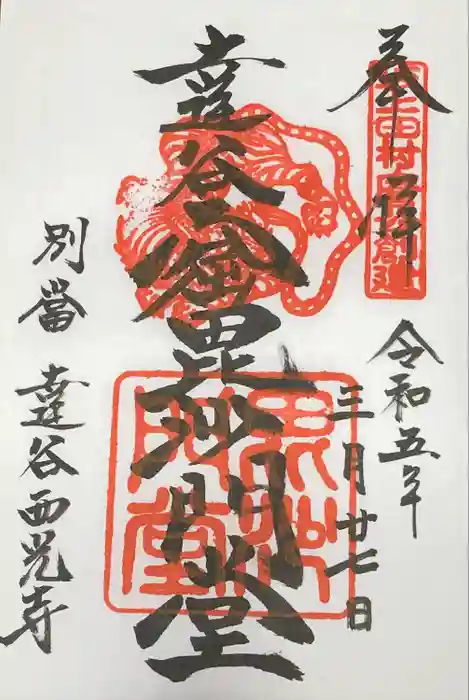 奉拝
令和五年
三月廿七日
達谷窟毘沙門堂
毘沙
門堂
別當
達谷西光寺